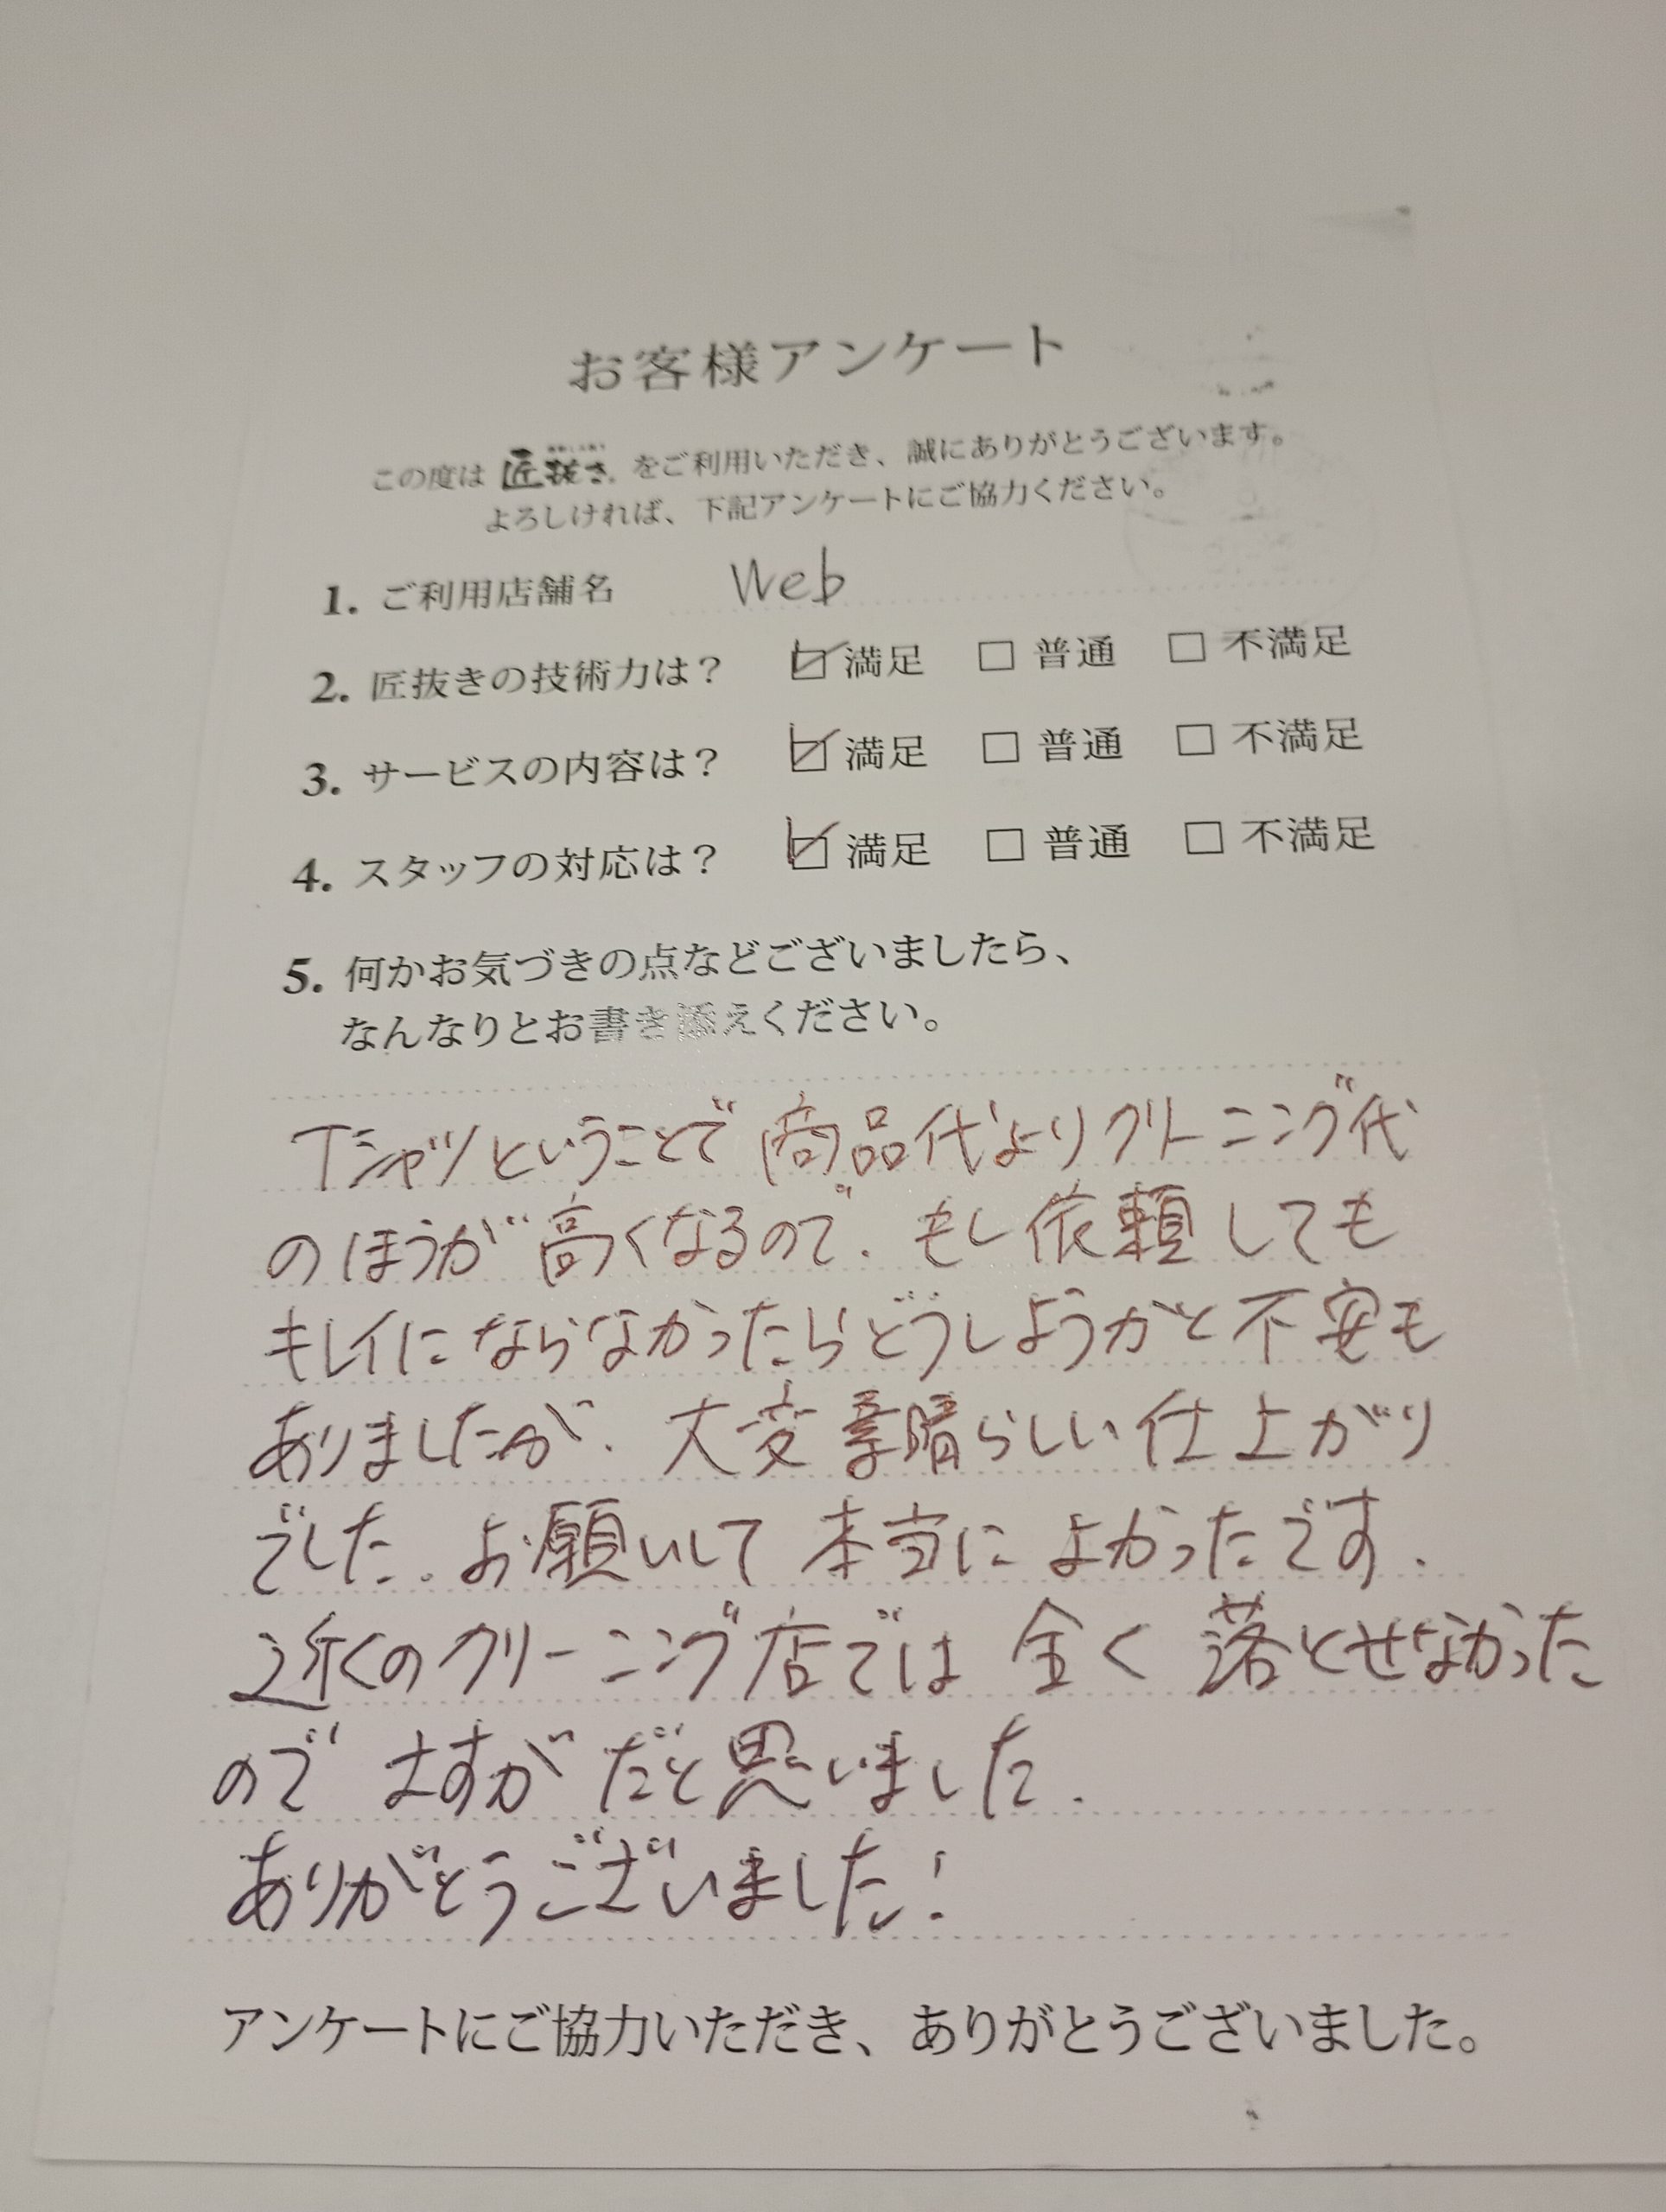 お客様アンケート
この度は 匠抜き をご利用いただき、誠にありがとうございます。
よろしければ、下記アンケートにご協力ください。
1. ご利用店舗名 Web
2. 匠抜きの技術力は? ☑ 満足 □ 普通 □ 不満足
3. サービスの内容は? ☑ 満足 □ 普通 □ 不満足
4. スタッフの対応は? ☑ 満足 □ 普通 □ 不満足
5. 何かお気づきの点などございましたら、
なんなりとお書き添えください。
Tシャツということで商品代よりクリーニング代
のほうが高くなるので、もし依頼しても
キレイにならなかったらどうしようかと不安も
ありましたが、大変素晴らしい仕上がり
でした。お願いして本当によかったです.
近くのクリーニング店では全く落とせなかった
のでさすがだと思いました.
ありがとうございました!
アンケートにご協力いただき、ありがとうございました。